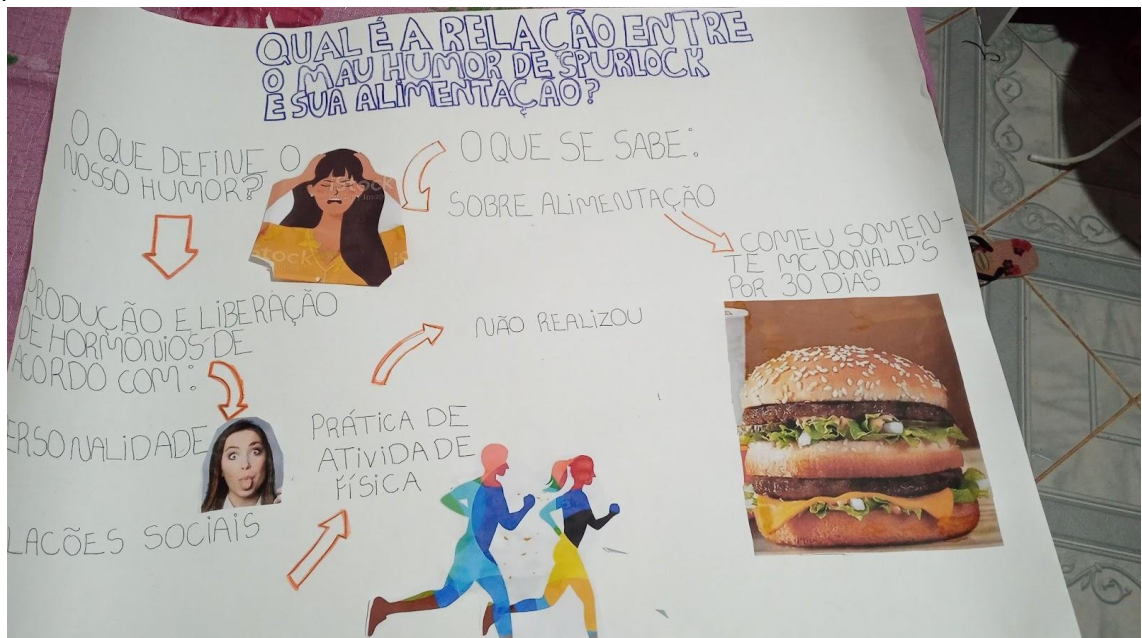 QUAL É A RELAÇÃO ENTRE
O MAU HUMOR DE SPURLOCK
E SUA ALIMENTAÇÃO?
O QUE DEFINE O
NOSSO HUMOR?
O QUE SE SABE:
SOBRE ALIMENTAÇÃO
COMEU SOMEN-
TE MC DONALD'S
POR 30 DIAS
PRODUÇÃO E LIBERAÇÃO
DE HORMÔNIOS DE
ACORDO COM:
ERSONALIDADE
LACÕES SOCIAIS
PRÁTICA DE
ATIVIDADE
FÍSICA
NÃO REALIZOU